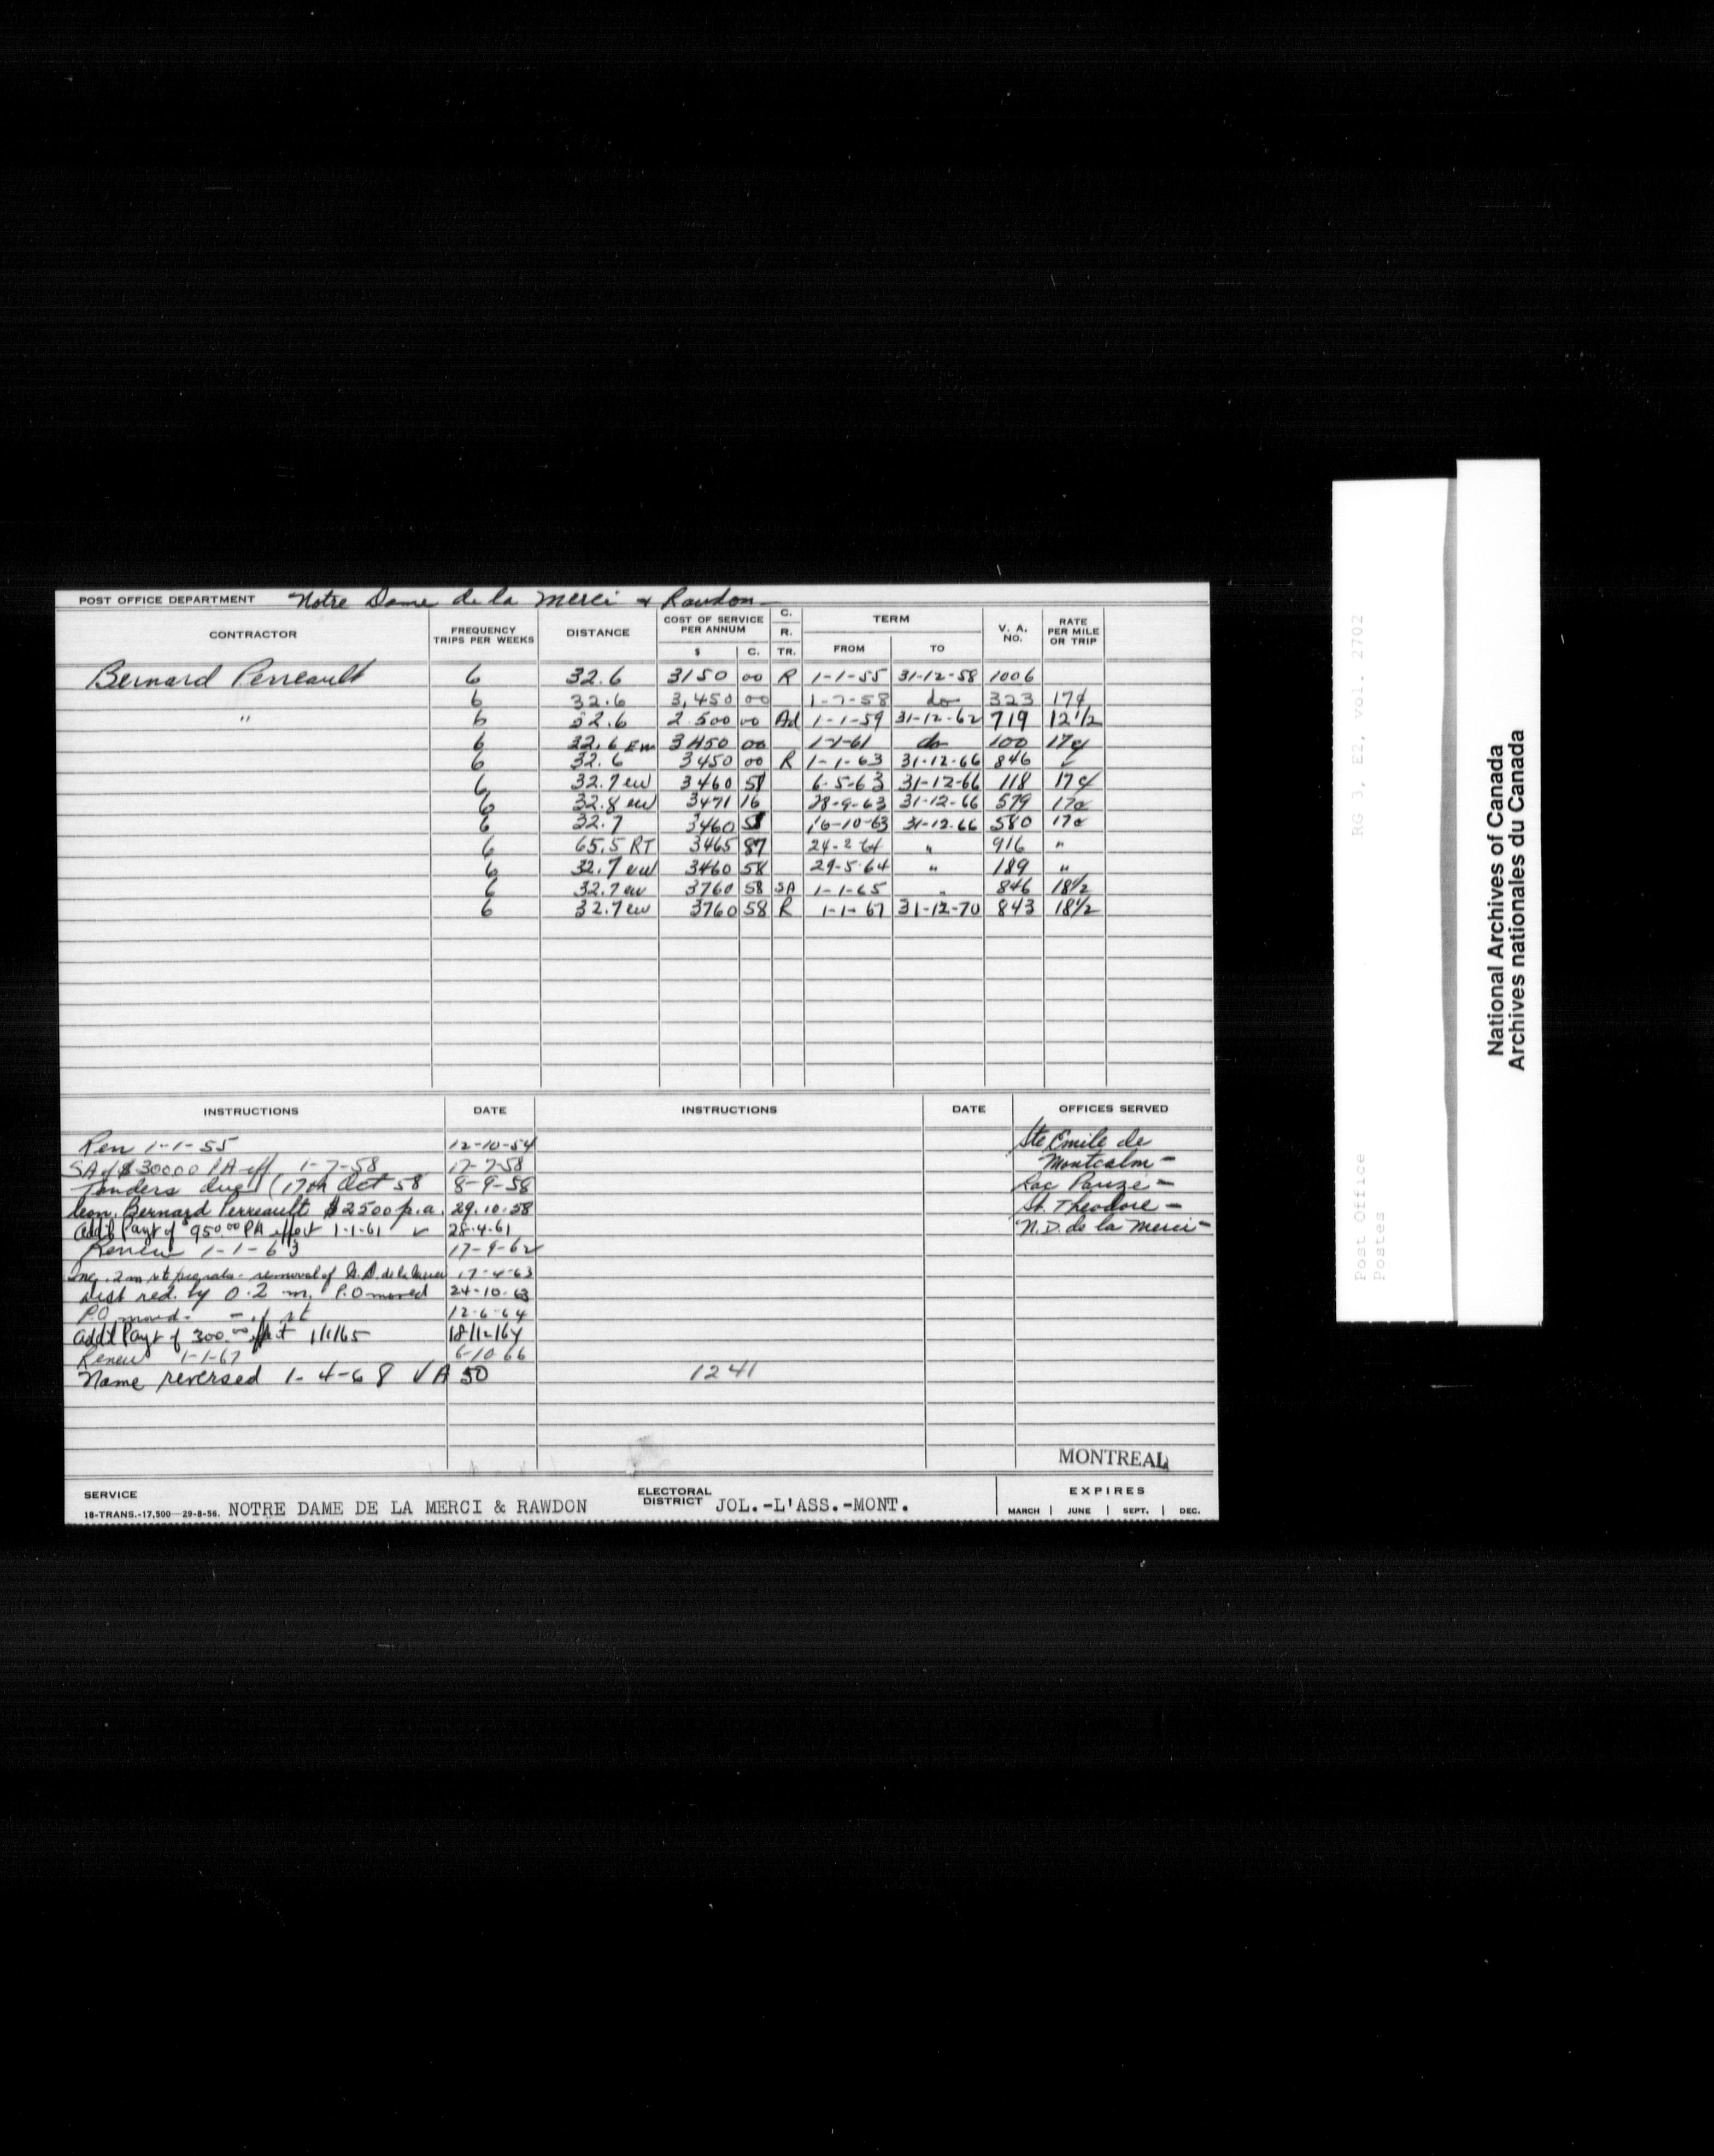 POST OFFICE DEPARTMENT Notre Dame de la Merci & Rawdon
CONTRACTOR FREQUENCY TRIPS PER WEEKS DISTANCE COST OF SERVICE PER ANNUM $ C. C. R. TR. TERM FROM TO V. A. NO. RATE PER MILE OR TRIP
Bernard Perreault 6 32.6 3150 00 R 1-1-55 31-12-58 1006
6 32.6 3,450 00 1-7-58 do 323 17¢
" 6 32.6 2.500 00 Ad 1-1-59 31-12-62 719 12½
6 32.6 Ew 3450 00 1-1-61 do 100 17¢
6 32.6 3450 00 R 1-1-63 31-12-66 846
6 32.7 ew 3460 58 6-5-63 31-12-66 118 17¢
6 32.8 ew 3471 16 28-9-63 31-12-66 579 17¢
6 32.7 3460 58 16-10-63 31-12-66 580 17¢
6 65.5 RT 3465 87 24-2-64 " 916 "
6 32.7 ew 3460 58 29-5-64 " 189 "
6 32.7 ew 3760 58 SA 1-1-65 " 846 18½
6 32.7 ew 3760 58 R 1-1-67 31-12-70 843 18½
INSTRUCTIONS DATE INSTRUCTIONS DATE OFFICES SERVED
Ren 1-1-55 12-10-54 Ste Emile de
SA of $30000 PA eff 1-7-58 17-7-58 Montcalm -
Tenders due (17th Oct 58 8-9-58 Lac Pauzé -
Bernard Perreault $2500 p.a. 29.10.58 St. Theodore -
Add'l Payt of $950.00 PA effect 1-1-61 28.4.61 N.D. de la Merci -
Renew 1-1-63 17-9-62
removal of N.D. de la Merci 17-4-63
Dist red. by 0.2 m. P.O moved 24-10-63
P.O moved 12-6-64
Add'l Payt of 300.00 1/1/65 18/12/64
Renew 1-1-67 6-10-66
Name reversed 1-4-68 VA 50 1241
MONTREAL
SERVICE NOTRE DAME DE LA MERCI & RAWDON ELECTORAL DISTRICT JOL.-L'ASS.-MONT. EXPIRES
18-TRANS.-17,500—29-8-56. MARCH JUNE SEPT. DEC.
RG 3, E2, vol. 2702
Post Office
Postes
National Archives of Canada
Archives nationales du Canada